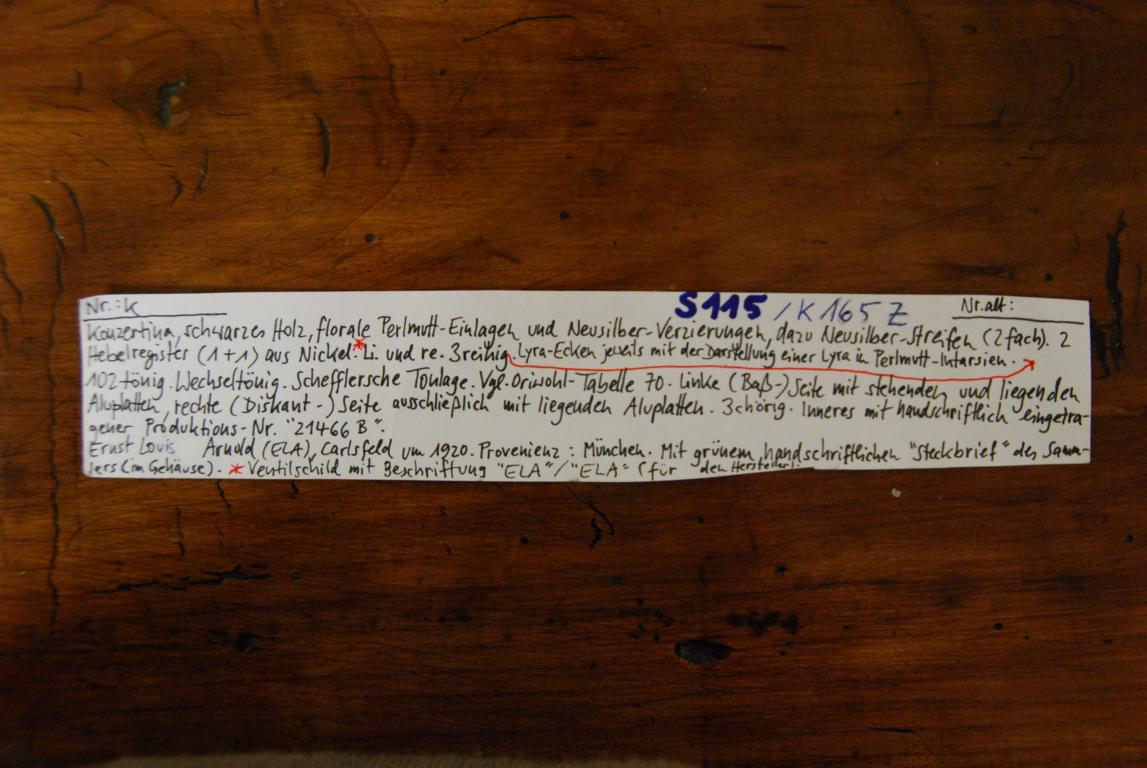 Nr.: K S115 / K 165 Z Nr. alt:
Konzertina, schwarzes Holz, florale Perlmutt-Einlagen und Neusilber-Verzierungen, dazu Neusilber-Streifen (2fach). 2
Hebelregister (1+1) aus Nickel.* Li. und re. 3reihig. Lyra-Ecken jeweils mit der Darstellung einer Lyra in Perlmutt-Intarsien.
102tönig. Wechseltönig. Schefflersche Tonlage. Vgl. Oriwohl-Tabelle 70. Linke (Baß-) Seite mit stehenden und liegenden
Aluplatten, rechte (Diskant-) Seite ausschließlich mit liegenden Aluplatten. 3chörig. Inneres mit handschriftlich eingetra-
gener Produktions-Nr. "21466 B".
Ernst Louis Arnold (ELA), Carlsfeld um 1920. Provenienz: München. Mit grünem, handschriftlichen "Steckbrief" des Samm-
lers (im Gehäuse). * Ventilschild mit Beschriftung "ELA"/"ELA" (für den Hersteller).